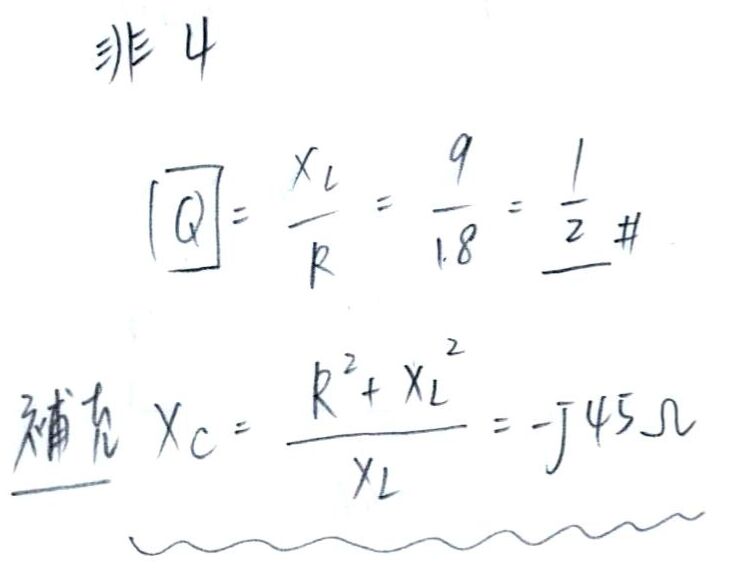 非 4
Q = X_L / R = 9 / 1.8 = 1 / 2 #
補充 X_C = (R² + X_L²) / X_L = -j45Ω